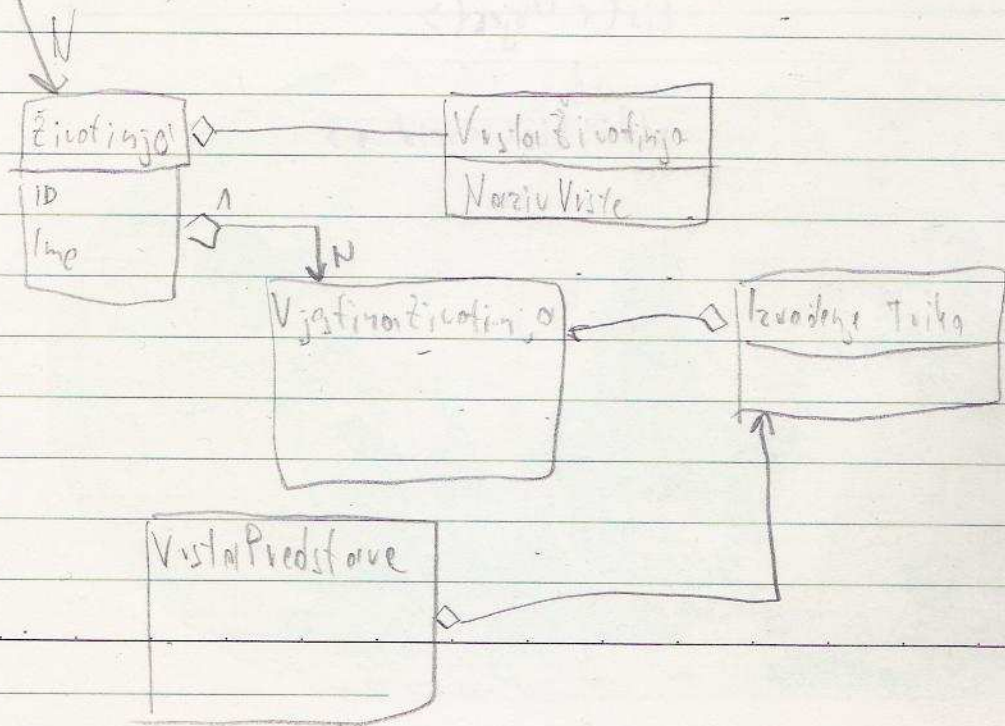 N
Životinja
VrstaŽivotinja
ID
NazivVrste
Ime
1
N
VještinaŽivotinja
Izvođenje Trika
VrstaPredstave